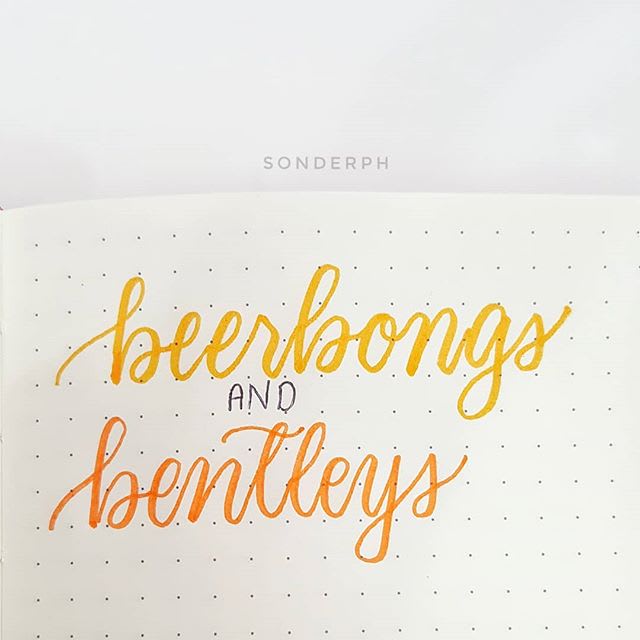 SONDERPH
beerbongs
AND
bentleys